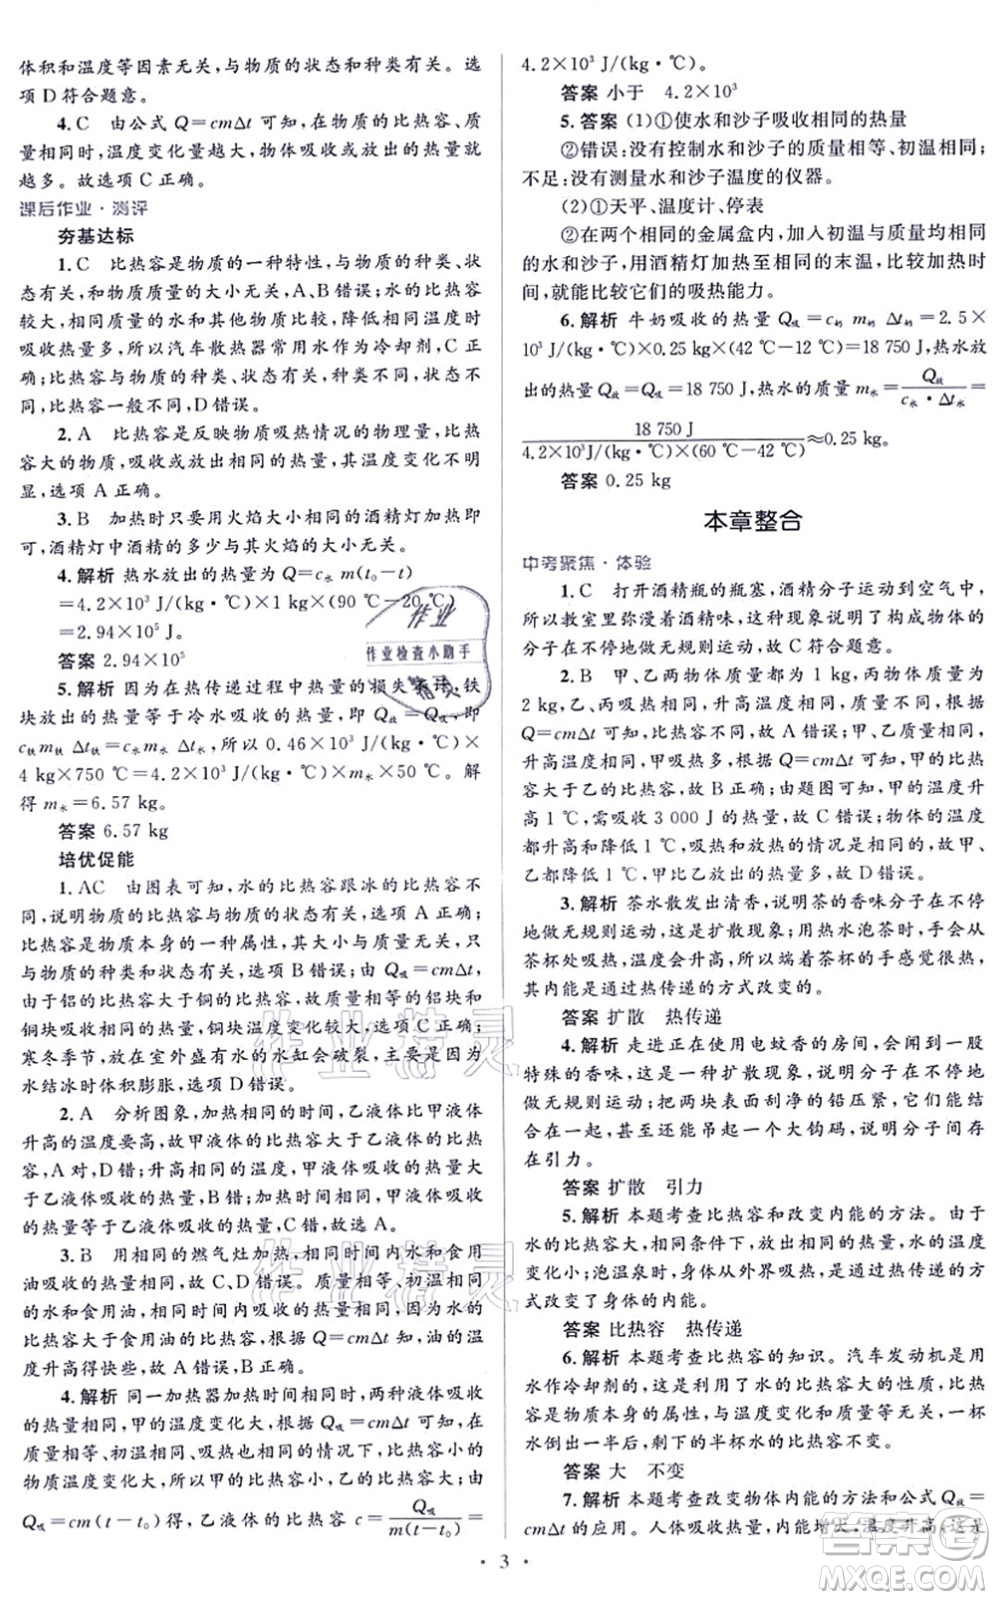 体积和温度等因素无关,与物质的状态和种类有关。选
项 D 符合题意。
4. C 由公式 Q=cmΔt 可知,在物质的比热容、质
量相同时,温度变化量越大,物体吸收或放出的热量就
越多。故选项 C 正确。
课后作业·测评
夯基达标
1. C 比热容是物质的一种特性,与物质的种类、
状态有关,和物质质量的大小无关,A、B 错误;水的比热容
较大,相同质量的水和其他物质比较,降低相同温度时
吸收热量多,所以汽车散热器常用水作为冷却剂,C 正
确;比热容与物质的种类、状态有关,种类不同,状态不
同,比热容一般不同,D 错误。
2. A 比热容是反映物质吸热情况的物理量,比热
容大的物质,吸收或放出的热量多,其温度变化不明
显,选项 A 正确。
3. B 加热时只要用火焰大小相同的酒精灯加热即
可,酒精灯中酒精的多少与其火焰的大小无关。
4. 解析 热水放出的热量 Q=c水 m(t₀-t)
=4.2×10³ J/(kg·℃)×1 kg×(90 ℃-20 ℃)
=2.94×10⁵ J。
答案 2.94×10⁵
5. 解析 因为在热传递过程中热量的损失不计,铁
块放出的热量等于冷水吸收的热量,即 Q放=Q吸,即
c铁m铁 Δt铁=c水m水 Δt水,所以 0.46×10³ J/(kg·℃)×
4 kg×750 ℃=4.2×10³ J/(kg·℃)×m水×50 ℃。解
得 m水=6.57 kg。
答案 6.57 kg
培优促能
1. AC 由图表可知,水的比热容跟冰的比热容不
同,说明物质的比热容与物质的状态有关,选项 A 正确;
比热容是物质本身的一种属性,其大小与质量无关,只
与物质的种类和状态有关,选项 B 错误;由 Q吸=cmΔt 可
知,由于铝的比热容大于铜的比热容,质量相同的铝块和
铜块吸收相同的热量,铜块温度变化较大,选项 C 正确;
寒冬季节,放在室外盛有水的水缸会破裂,主要是因为
水结冰时体积膨胀,故选项 D 错误。
2. A 分析图象,加热相同的时间,乙液体比甲液体
升高的温度要高,故甲液体的比热容大于乙液体的比热
容,A 对,D 错;升高相同的温度,甲液体吸收的热量大
于乙液体吸收的热量,B 错;加热相同的时间,甲液体吸收
的热量等于乙液体吸收的热量,C 错。故选 A。
3. B 用相同的燃气灶加热,相同时间内水和食用
油吸收的热量相同,故 C、D 错误。质量相等、初温相同
的水和食用油,相同时间内吸收的热量相同,由于水的
比热容大于食用油的比热容,根据 Q=cmΔt 知,油的温
度升高得快些,故 A 错误,B 正确。
4. 解析 同一加热器加热时间相同时,两种液体吸收
的热量相同,甲的温度变化大,根据 Q吸=cmΔt 可知,在
质量相等、初温相同、吸热也相同的情况下,比热容小的
物质温度变化大,所以甲的比热容小,乙的比热容大;由
Q吸=cm(t-t₀)得,乙液体的比热容 c=Q吸/m(t-t₀)=
4.2×10³ J/(kg·℃)。
答案 小于 4.2×10³
5. 答案 (1)①使水和沙子吸收相同的热量
②错误:没有控制水和沙子的质量相等、初温相同;
不足:没有测量水和沙子温度的仪器。
(2)①天平、温度计、停表
②在两个相同的金属盒内,加入初温、质量均相同
的水和沙子,用酒精灯加热至相同的末温,比较加热时
间,就能比较它们的吸热能力。
6. 解析 牛奶吸收的热量 Q吸=c奶 m奶 Δt奶=2.5×
10³ J/(kg·℃)×0.25 kg×(42 ℃-12 ℃)=18 750 J,热水放
出的热量 Q放=Q吸=18 750 J,热水的质量 m水=Q放/c水·Δt水=
18 750 J/4.2×10³J/(kg·℃)×(60 ℃-42 ℃)≈0.25 kg。
答案 0.25 kg
本章整合
中考聚焦·体验
1. C 打开酒精瓶的瓶塞,酒精分子运动到空气中,
所以教室里弥漫着酒精味,说明了构成物体的分子
在不停地做无规则运动,故 C 符合题意。
2. B 甲、乙两物体质量都为 1 kg,丙物体质量为
2 kg,乙、丙吸热相同,升高温度相同,质量不同,根据
Q=cmΔt可知,比热容不相同,故 A 错误;甲、乙质量相同,
升高温度相同,甲吸热多,根据 Q=cmΔt 可知,甲比热
容比乙比热容大,故 B 正确;由题图可知,甲的温度升
高 1 ℃,需吸收 3 000 J 的热量,故 C 错误;从题图中看
出都升高相同的温度,吸热和放热的情况是相同的,故甲、
乙都降低 1 ℃,甲比乙放出的热量多,故 D 错误。
3. 解析 茶水散发出清香,说明茶的香味分子在不停
地做无规则运动,这是扩散现象;用热水泡茶时,茶杯从
茶杯处吸热,温度会升高,摸茶杯的手感觉很热,
其内能是通过热传递的方式改变的。
答案 扩散 热传递
4. 解析 走进正在使用电蚊香的房间,会闻到一股
特殊的香味,这是一种扩散现象,说明分子在不停地
做无规则运动;把两块表面刮净的铅压紧,它们就会结
合在一起,甚至还能吊起一个大钩码,说明分子间存
在引力。
答案 扩散 引力
5. 解析 本题考查比热容和改变内能的方法。由于
水的比热容大,同样条件下,放出相同的热量,温度
变化小;泡温泉时,身体从外界吸热,是通过热传递的方
式改变了身体的内能。
答案 比热容 热传递
6. 解析 本题考查比热容的知识。汽车发动机是用
水作冷却剂的,这是利用了水的比热容大的性质,比热
容是物质本身的属性,与物质的质量等无关,一杯
水倒出一半后,剩下的半杯水的比热容不变。
答案 大 不变
7. 解析 本题考查改变物体内能的方法和公式 Q放=
cmΔt 的应用。人体吸收热量,内能增大,温度升高,这是
· 3 ·
作业
作业检查小助手
作业精灵
作业精灵
答案圈
MXQE.COM